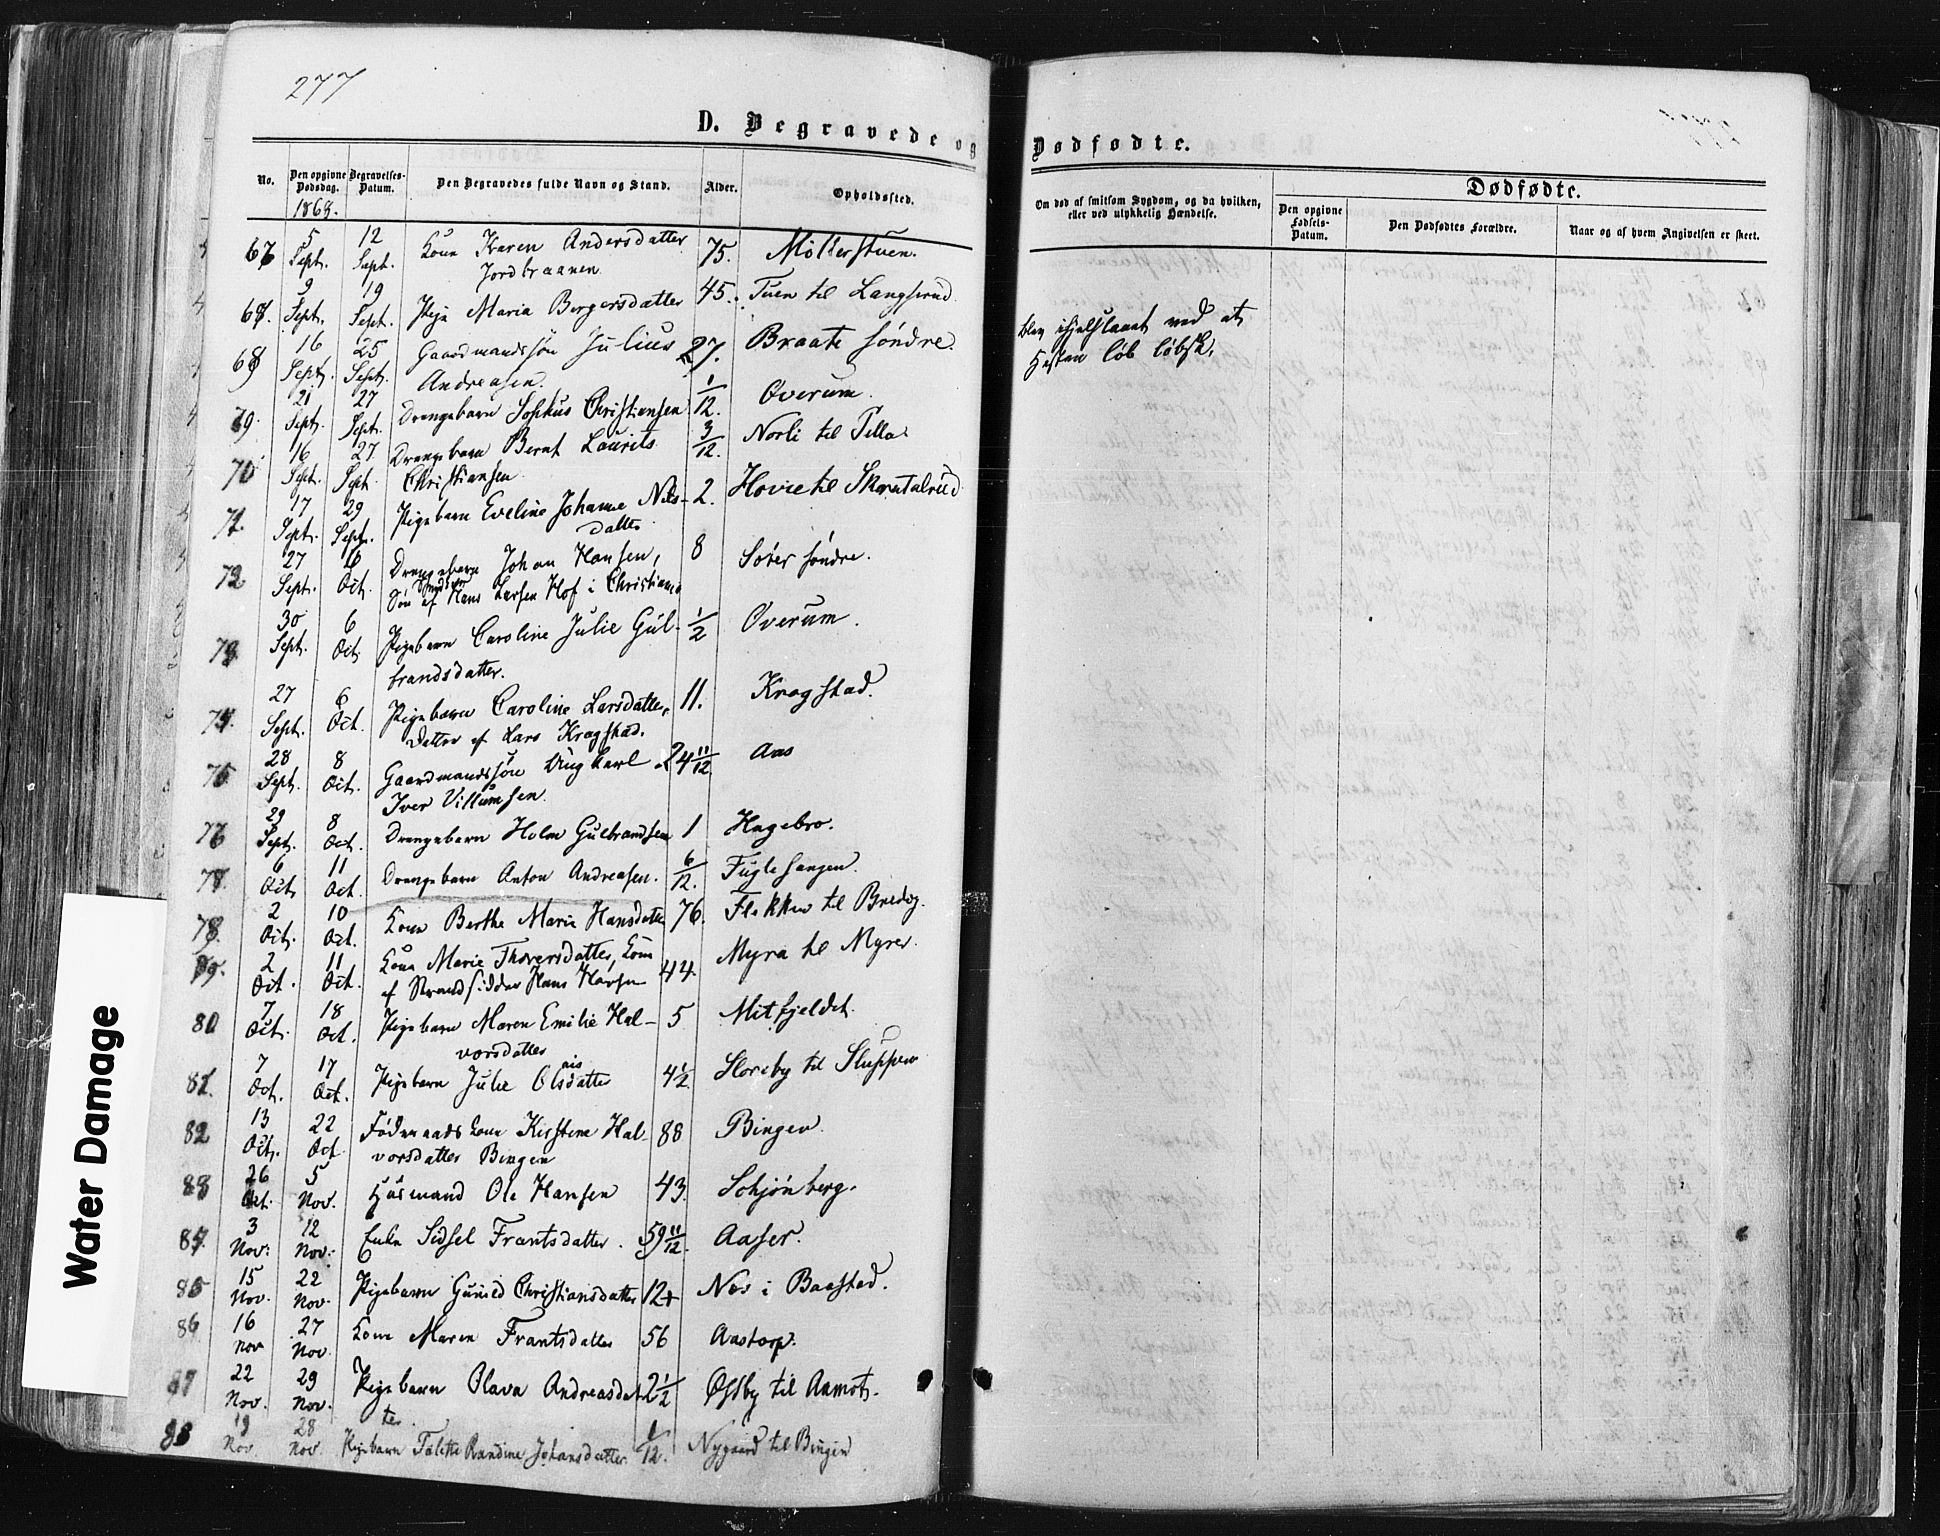 277
D. Begravede og
Dødfødte.
No.
Den opgivne Dødsdag.
1868.
Begravelses-Datum.
Den Begravedes fulde Navn og Stand.
Alder.
Opholdssted.
Om død af smitsom Sygdom, og da hvilken,
eller ved ulykkelig Hændelse.
Dødfødte.
Den opgivne Fødsels-Datum.
Den Dødfødtes Forældre.
Naar og af hvem Angivelsen er skeet.
5 Sept. 12 Sept. Kone Karen Andersdatter 75. Møllerstuen.
Jordbraanen
9 Sept. 19 Sept. Pige Maria Borgersdatter 45. Tuen til Langserud
68 16 Sept. 25 Sept. Gaardmandssøn Julius 27. Braate søndre. Blev ihjelslaaet ved at
Andreasen. Hesten løb løbsk.
69. 21 Sept. 27 Sept. Drengebarn Sophus Christiansen 1/12. Overum.
70 16 Sept. 27 Sept. Drengebarn Bernt Laurits 3/12. Norli til
Christiansen
71. 17 Sept. 29 Sept. Pigebarn Eveline Johanne Nils- 2. Hovie til
datter
72 27 Sept. 6 Oct. Drengebarn Johan Hansen, 8 søndre.
Søn af Hans Larsen Hof i Christiania
73 30 Sept. 6 Oct. Pigebarn Caroline Julie Gul- 1/2 Overum.
brandsdatter.
74. 27 Sept. 6 Oct. Pigebarn Caroline Larsdatter, 11. Kragstad.
Datter af Lars Kragstad.
75 28 Sept. 8 Oct. Gaardmandssøn Ungkarl 24 11/12 Aas
Iver Villumsen.
76 29 Sept. 8 Oct. Drengebarn Holm Gulbrandsen 1 Hagebro.
6 Oct. 11 Oct. Drengebarn Anton Andreasen. 6/12. Fuglesangen.
78. 2 Oct. 10 Oct. Kone Berthe Marie Hansdatter 76.
79. 2 Oct. 11 Oct. Kone Marie Thoversdatter, Kone 44. Myra til Myrer.
af Strandsidder Hans
80 7 Oct. 18 Oct. Pigebarn Maren Emilie Hal- 5 Mitfjeldet.
vorsdatter
81. 7 Oct. 17 Oct. Pigebarn Julie Olsdatter 4 1/2 Sloreby til
82 13 Oct. 22 Oct Føderaads Kone Kirstine Hal- 88 Bingen.
vorsdatter Bingen
83 26 Oct. 5 Nov. Husmand Ole Hansen 43. Schjönberg.
84. 3 Nov. 12 Nov. Enke Sidsel Frantsdatter. 59 11/12. Aaser.
85 15 Nov. 22 Nov. Pigebarn Gunild Christiansdatter 12 Næs i Baastad.
86 16 Nov 27 Nov. Kone Maren Frantsdatter 56 Aastorp.
87 22 Nov. 29 Nov. Pigebarn Olava Andreasdat- 2 1/2 Østby til Aamot.
ter
88 19 Nov. 28 Nov. Pigebarn Randine Johansdatter 1/12. Nygaard til Bingen
Water Damage